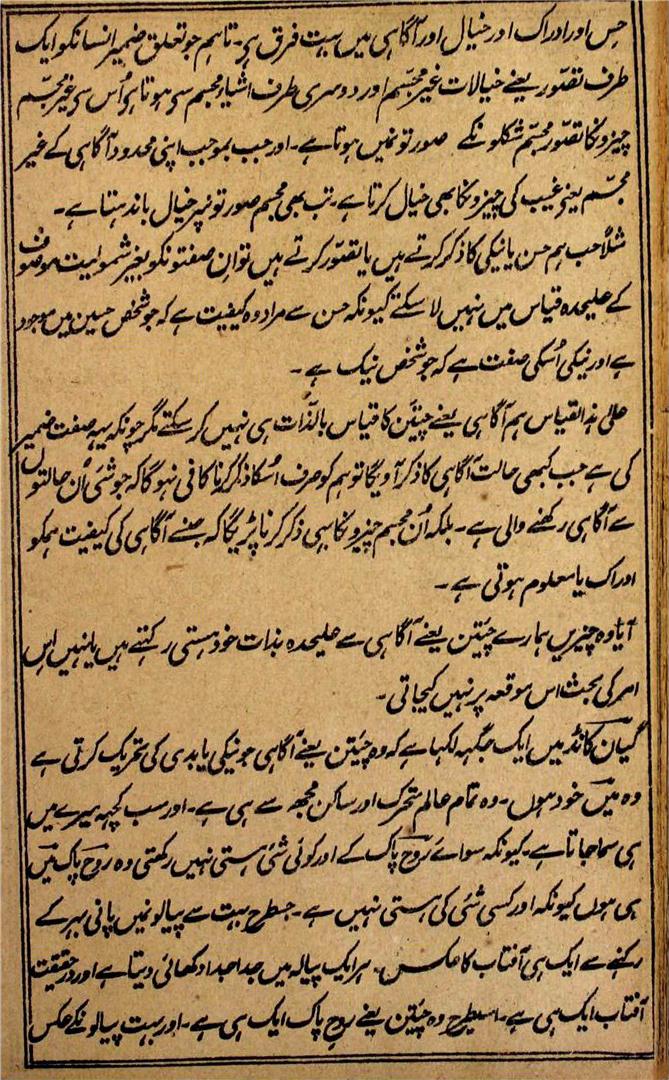 حس اور ادراک اور خیال اور آگاہی میں بہت فرق ہی۔ تاہم جو تعلق ضمیر انسانکو ایک
طرف تصّور یعنے خیالات غیر مجسّم اور دوسری طرف اشیاء مجسم سی ہوتا ہی اُس سی غیر مجسّم
چیزونکا تصّور مجسّم شکلونکے صورتونمیں ہوتا ہے۔ اور جب بموجب اپنی محدود آگاہی کے غیر
مجسّم یعنی غیب کی چیزونکا بھی خیال کرتا ہے۔ تب بھی مجسم صورتونپر خیال باندہتا ہے۔
مثلاً جب ہم حسن یا نیکی کا ذکر کرتے ہیں یا تصّور کرتے ہیں تو ان صفتونکو بغیر شمولیت موصوف
کے علیحدہ قیاس میں نہیں لا سکتے کیونکہ حسن سے مراد وہ کیفیت ہے کہ جو شخص حسین میں موجود
ہے اور نیکی اُسکی صفت ہے کہ جو شخص نیک ہے۔
علیٰ ہذالقیاس ہم آگاہی یعنے چیتَن کا قیاس بالذّات ہی نہیں کر سکتے مگر چونکہ یہہ صفت ضمیر
کی ہے جب کبھی حالت آگاہی کا ذکر آویگا تو ہم کو صرف اُسکا ذکر کرنا کافی نہوگا کہ جو شئی اُن حالتوں
سے آگاہی رکھنے والی ہے۔ بلکہ اُن مجسم چیزونکا بہی ذکر کرنا پڑیگا کہ جنسے آگاہی کی کیفیت ہمکو
ادراک یا معلوم ہوتی ہے۔
آیا وہ چیزیں ہمارے چیتَن یعنے آگاہی سے علیحدہ بذات خود ہستی رکہتے ہیں یا نہیں اس
امر کی بحث اس موقعہ پر نہیں کیجاتی۔
گیان کانڈ میں ایک جگہہ لکہا ہے کہ وہ چیتَن یعنے آگاہی جو نیکی یا بدی کی تحریک کرتی ہے
وہ میں خود ہوں۔ وہ تمام عالم متحرک اور ساکن مجھ سے ہی ہے۔ اور سب کچہہ میرے میں
ہی سما جاتا ہے۔ کیونکہ سواے روح پاک کے اور کوئی شئی ہستی نہیں رکھتی وہ روح پاک میں
ہی ہوں کیونکہ اور کسی شئی کی ہستی نہیں ہے۔ جسطرح بہت سے پیالونمیں پانی بہر کے
رکہنے سے ایک ہی آفتاب کا عکس ہر ایک پیالہ میں جدا جدا دکھائی دیتا ہے اور درحقیقت
آفتاب ایک ہی ہے۔ اسیطرح وہ چیتَن یعنے روح پاک ایک ہی ہے۔ اور بہت پیالونکے عکس